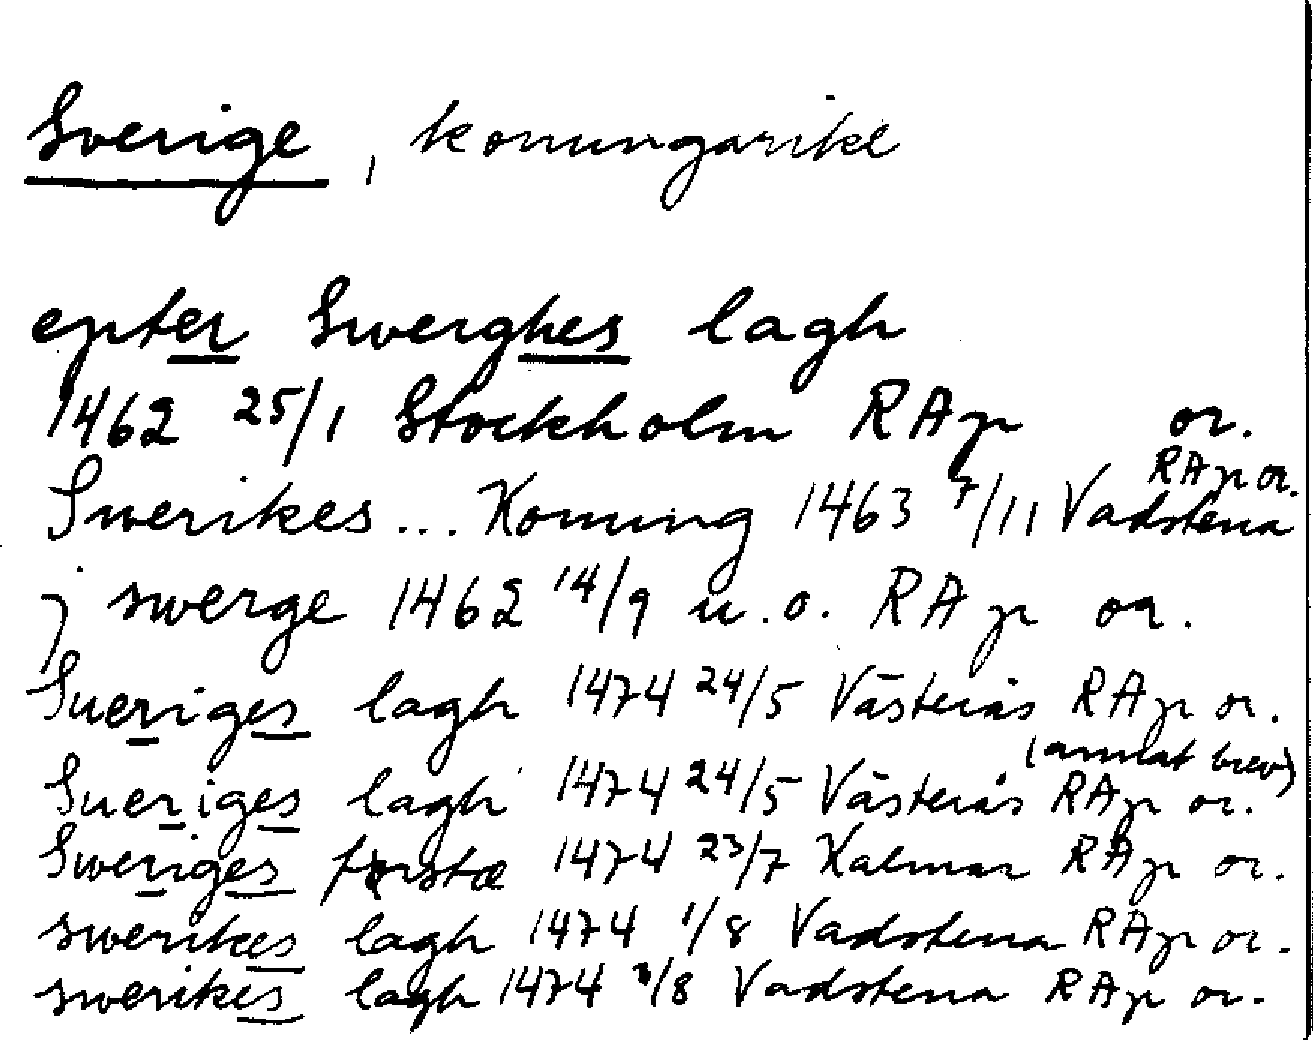 Sverige, konungarike
epter Swerghes lagh
1462 25/1 Stockholm RAp or.
RAp or.
Swerikes... Konung 1463 7/11 Vadstena
j swerge 1462 14/9 u.o. RAp or.
Sueriges lagh 1474 24/5 Västerås RAp or.
(annat brev)
Sueriges lagh 1474 24/5 Västerås RAp or.
Sweriges 1474 23/7 Kalmar RAp or.
swerikes lagh 1474 1/8 Vadstena RAp or.
swerikes lagh 1474 /8 Vadstena RAp or.